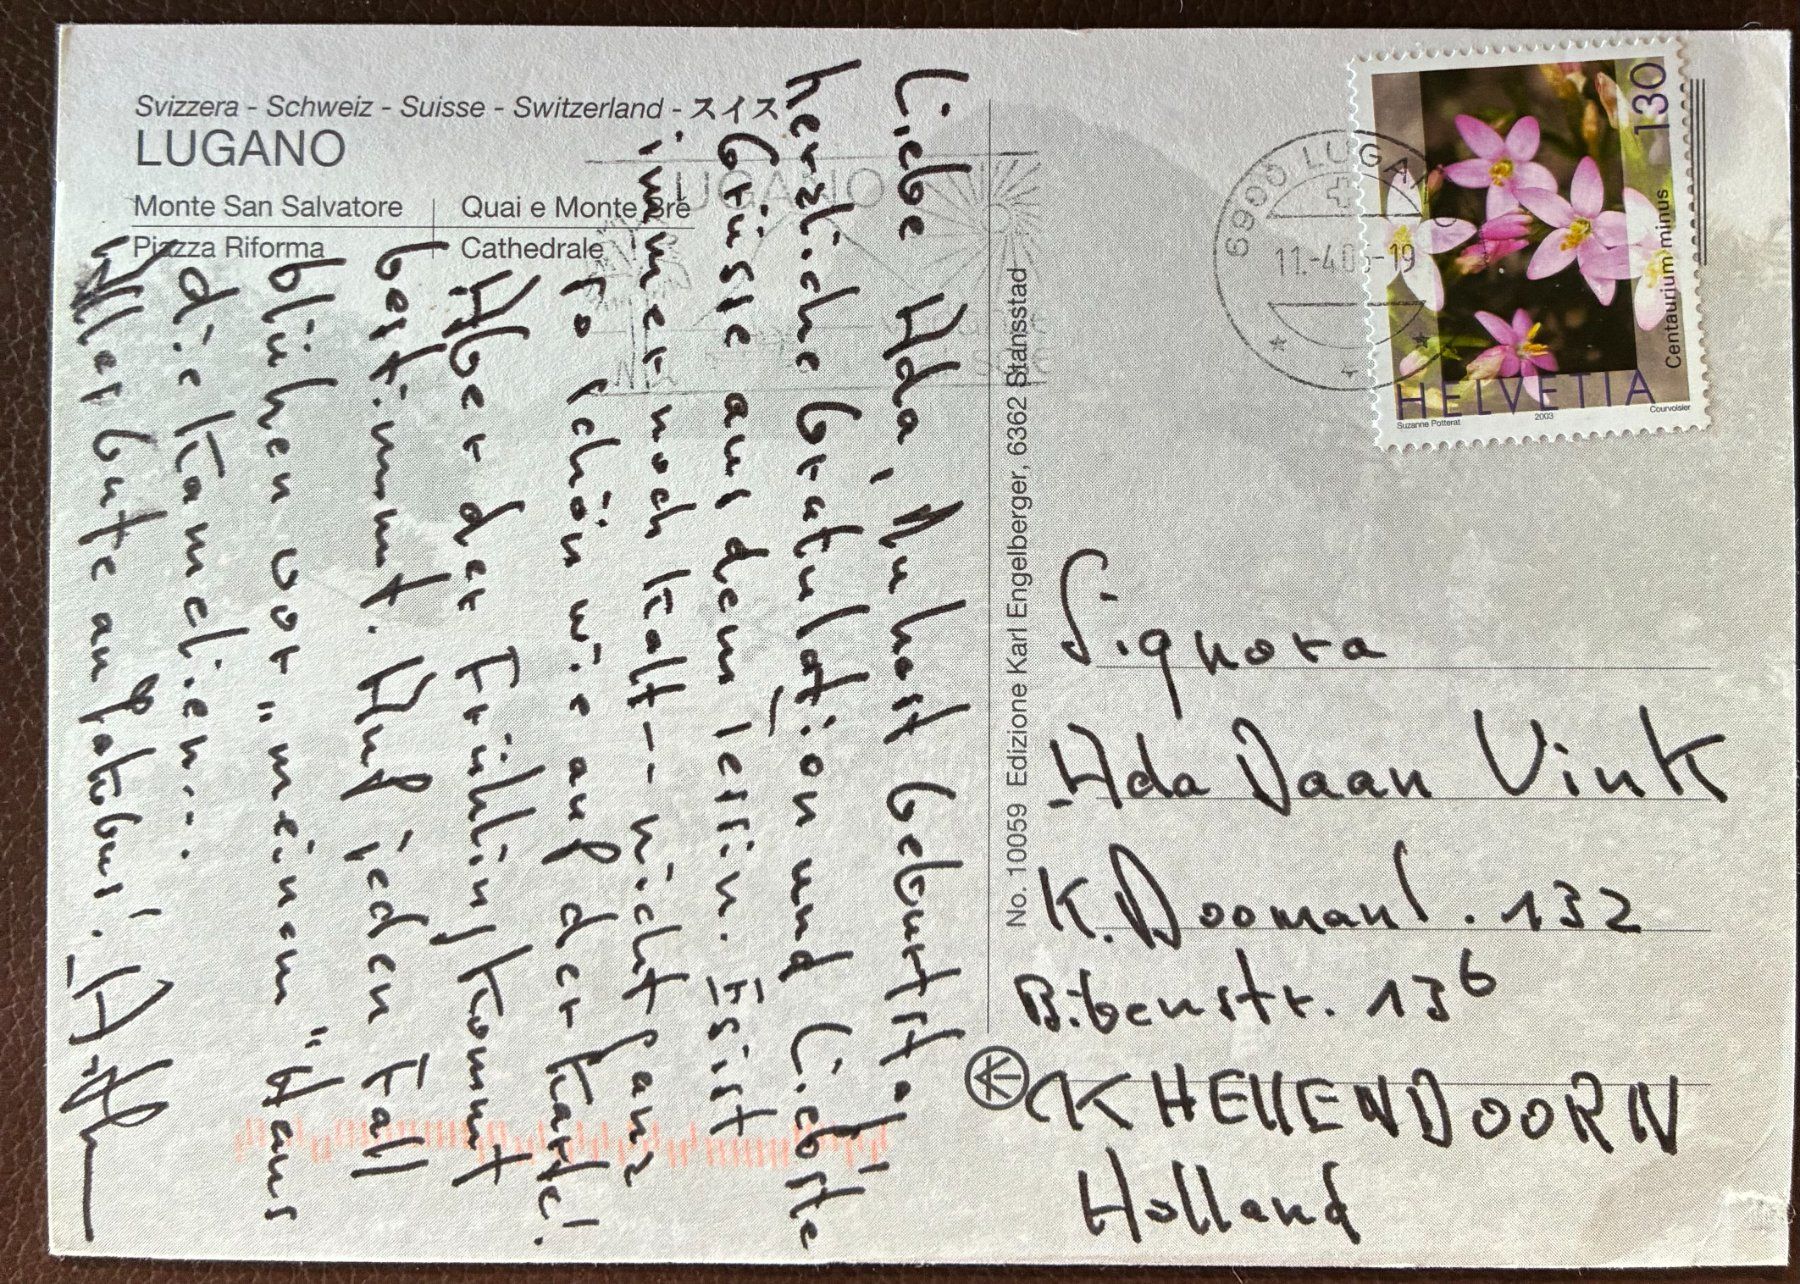 Svizzera - Schweiz - Suisse - Switzerland - スイス
LUGANO
Monte San Salvatore
Quai e Monte Brè
Piazza Riforma
Cathedrale
Liebe Ada, Du hast Geburtstag!
herzliche Gratulation und Liebste
Grüsse aus dem Tessin. Es ist
immer noch kalt – nicht ganz
so schön wie auf der Karte!
Aber der Frühling kommt
bestimmt. Auf jeden Fall
blühen vor "meinem" Haus
die Kamelien...
Alles Gute an Jakobus!
No. 10059 Edizione Karl Engelberger, 6362 Stansstad
LUGANO
6900 LUGA
11.-4.0 -19
130
Centaurium minus
HELVETIA
Suzanne Potterat
2003
Courvoisier
Signora
Ada Daan Vink
K. Doomans. 132
Bibenstr. 13b
KHELLENDOORN
Holland